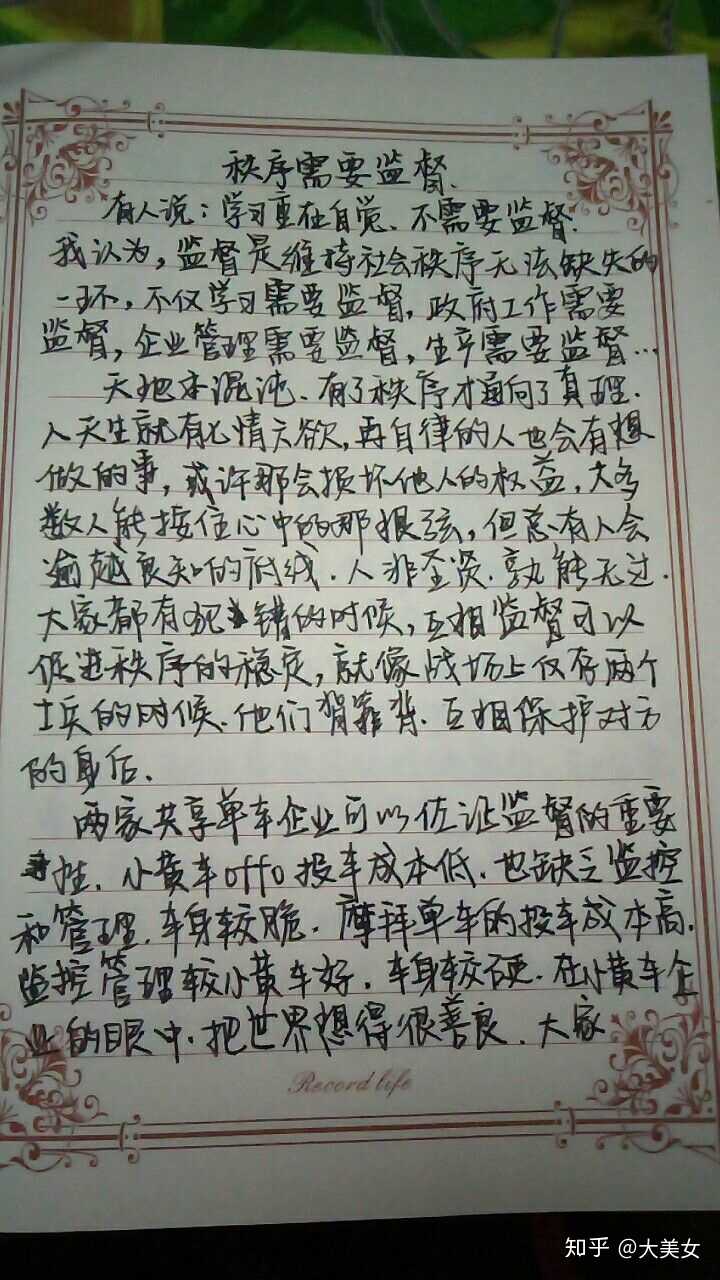 秩序需要监督.
有人说：学习重在自觉、不需要监督.
我认为，监督是维持社会秩序无法缺失的
一环，不仅学习需要监督，政府工作需要
监督，企业管理需要监督，生产需要监督…
天地本混沌、有了秩序才通向了真理.
人天生就有七情六欲，再自律的人也会有想
做的事，或许那会损坏他人的权益，大多
数人能按住心中的那根弦，但总有人会
逾越良知的底线.人非圣贤.孰能无过.
大家都有犯错的时候，互相监督可以
促进秩序的稳定，就像战场上仅存两个
士兵的时候.他们背靠背.互相保护对方
的身后.
两家共享单车企业可以佐证监督的重要
性.小黄车offo投车成本低.也缺乏监控
和管理.车身较脆.摩拜单车的投车成本高.
监控管理较小黄车好.车身较硬.在小黄车企
业的眼中.把世界想得很善良.大家
Record life
知乎 @大美女